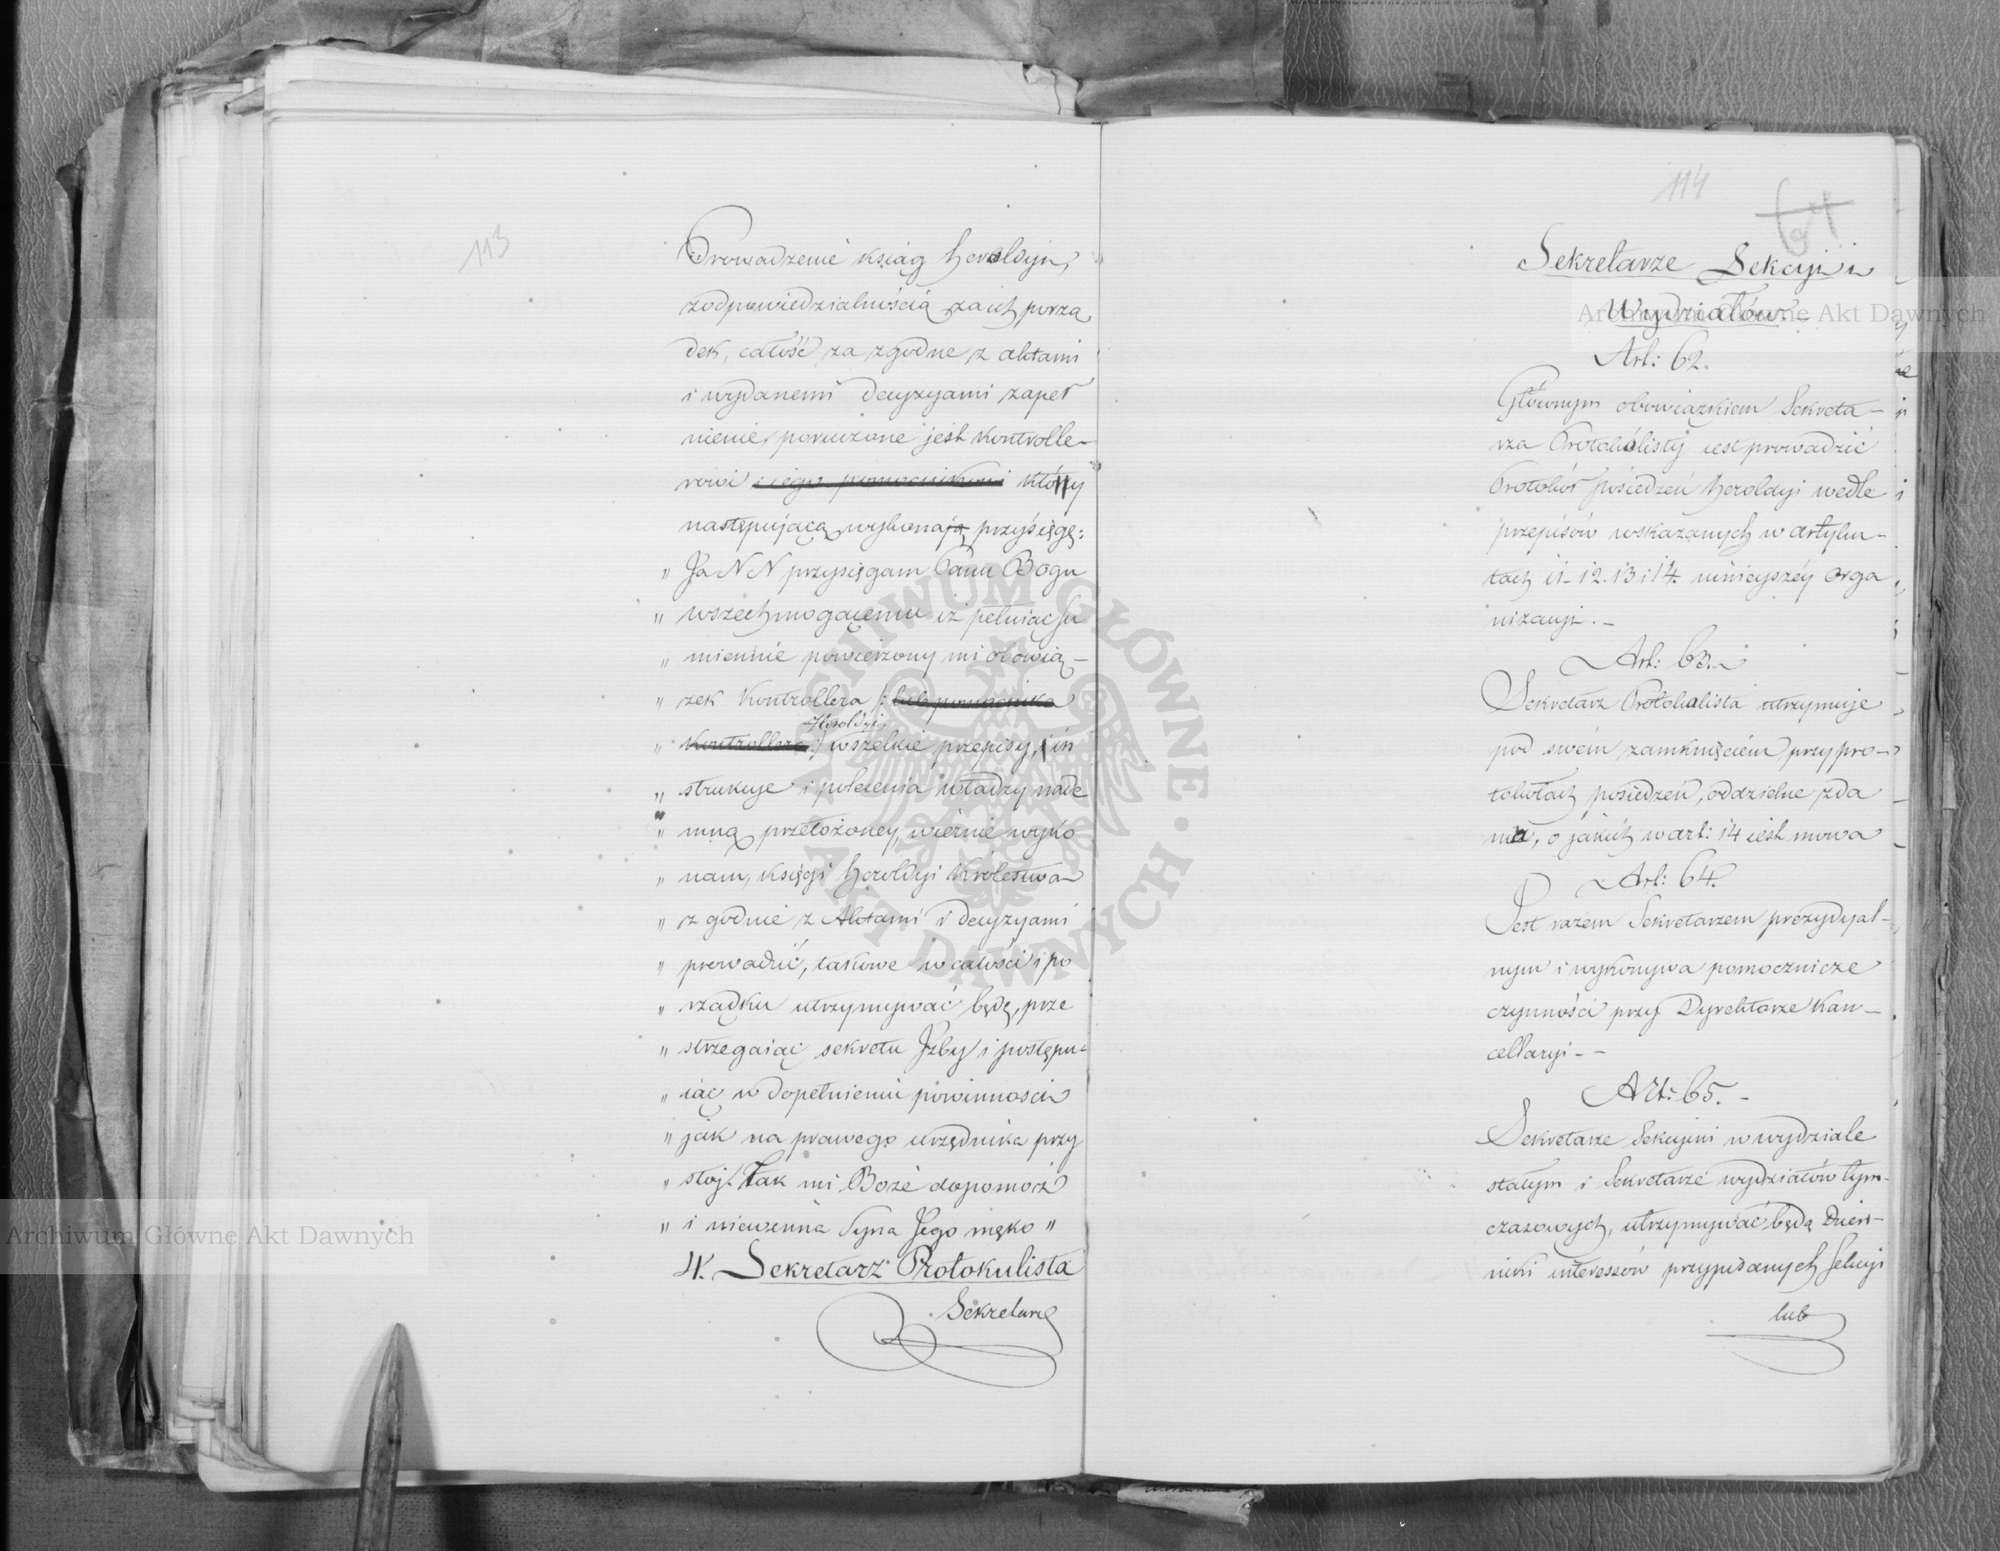 113
Prowadzenie ksiąg heroldyi,
z odpowiedzialnością za ich porzą
dek, całość, za zgodne z aktami
i wydanemi decyzyami zapeł
nienie, poruczone jest Kontrolle-
rowi i iego pomocnikowi który
następującą wykonają przysięgę:
" Ja N N przysięgam Panu Bogu
" wszechmogącemu iż pełniąc su
" miennie powierzony mi obowią-
" zek Kontrollera /: lub pomocnika
Heroldyi,
" Kontrollera :/ wszelkie przepisy, i in
" strukcye i polecenia władzy nade
" mną przełożoney, wiernie wyko
" nam, księgi heroldyi Królestwa
" zgodnie z Aktami i decyzyami
" prowadzić, takowe w całości i po
" rządku utrzymywać będę, prze
" strzegaiąc sekretu Izby i postępu-
" iąc w dopełnieniu powinności
" jak na prawego urzędnika przy
" stoj. Tak mi Boże dopomóż
" i niewinna Syna Jego męko "
4. Sekretarz Protokulista
Sekretarz
114
61
Sekretarze Sekcyi i
Wydziałów. -
Art: 62.
Głównym obowiązkiem Sekreta-
rza Protokolisty iest prowadzić
Protokół posiedzeń heroldyi wedle
przepisów wskazanych w artyku-
łach 11. 12. 13 i 14. ninieyszéy orga
nizacyi. -
Art: 63.
Sekretarz Protokolista utrzymuje
pod swém zamknięciem przy pro-
tokołach posiedzeń, oddzielne zda
nia, o jakich w art: 14 iest mowa
Art: 64.
Jest razem Sekretarzem prezydyal-
nym i wykonywa pomocnicze
czynności przy Dyrektorze Kan-
cellaryi - -
Art: 65. -
Sekretarze Sekcyini w wydziale
stałym i Sekretarze wydziałów tym-
czasowych, utrzymywać będą Dzien-
niki interessów przypisanych Sekcyi
lub
Archiwum Główne Akt Dawnych
Archiwum Główne Akt Dawnych
ARCHIWUM GŁÓWNE · AKT DAWNYCH ·